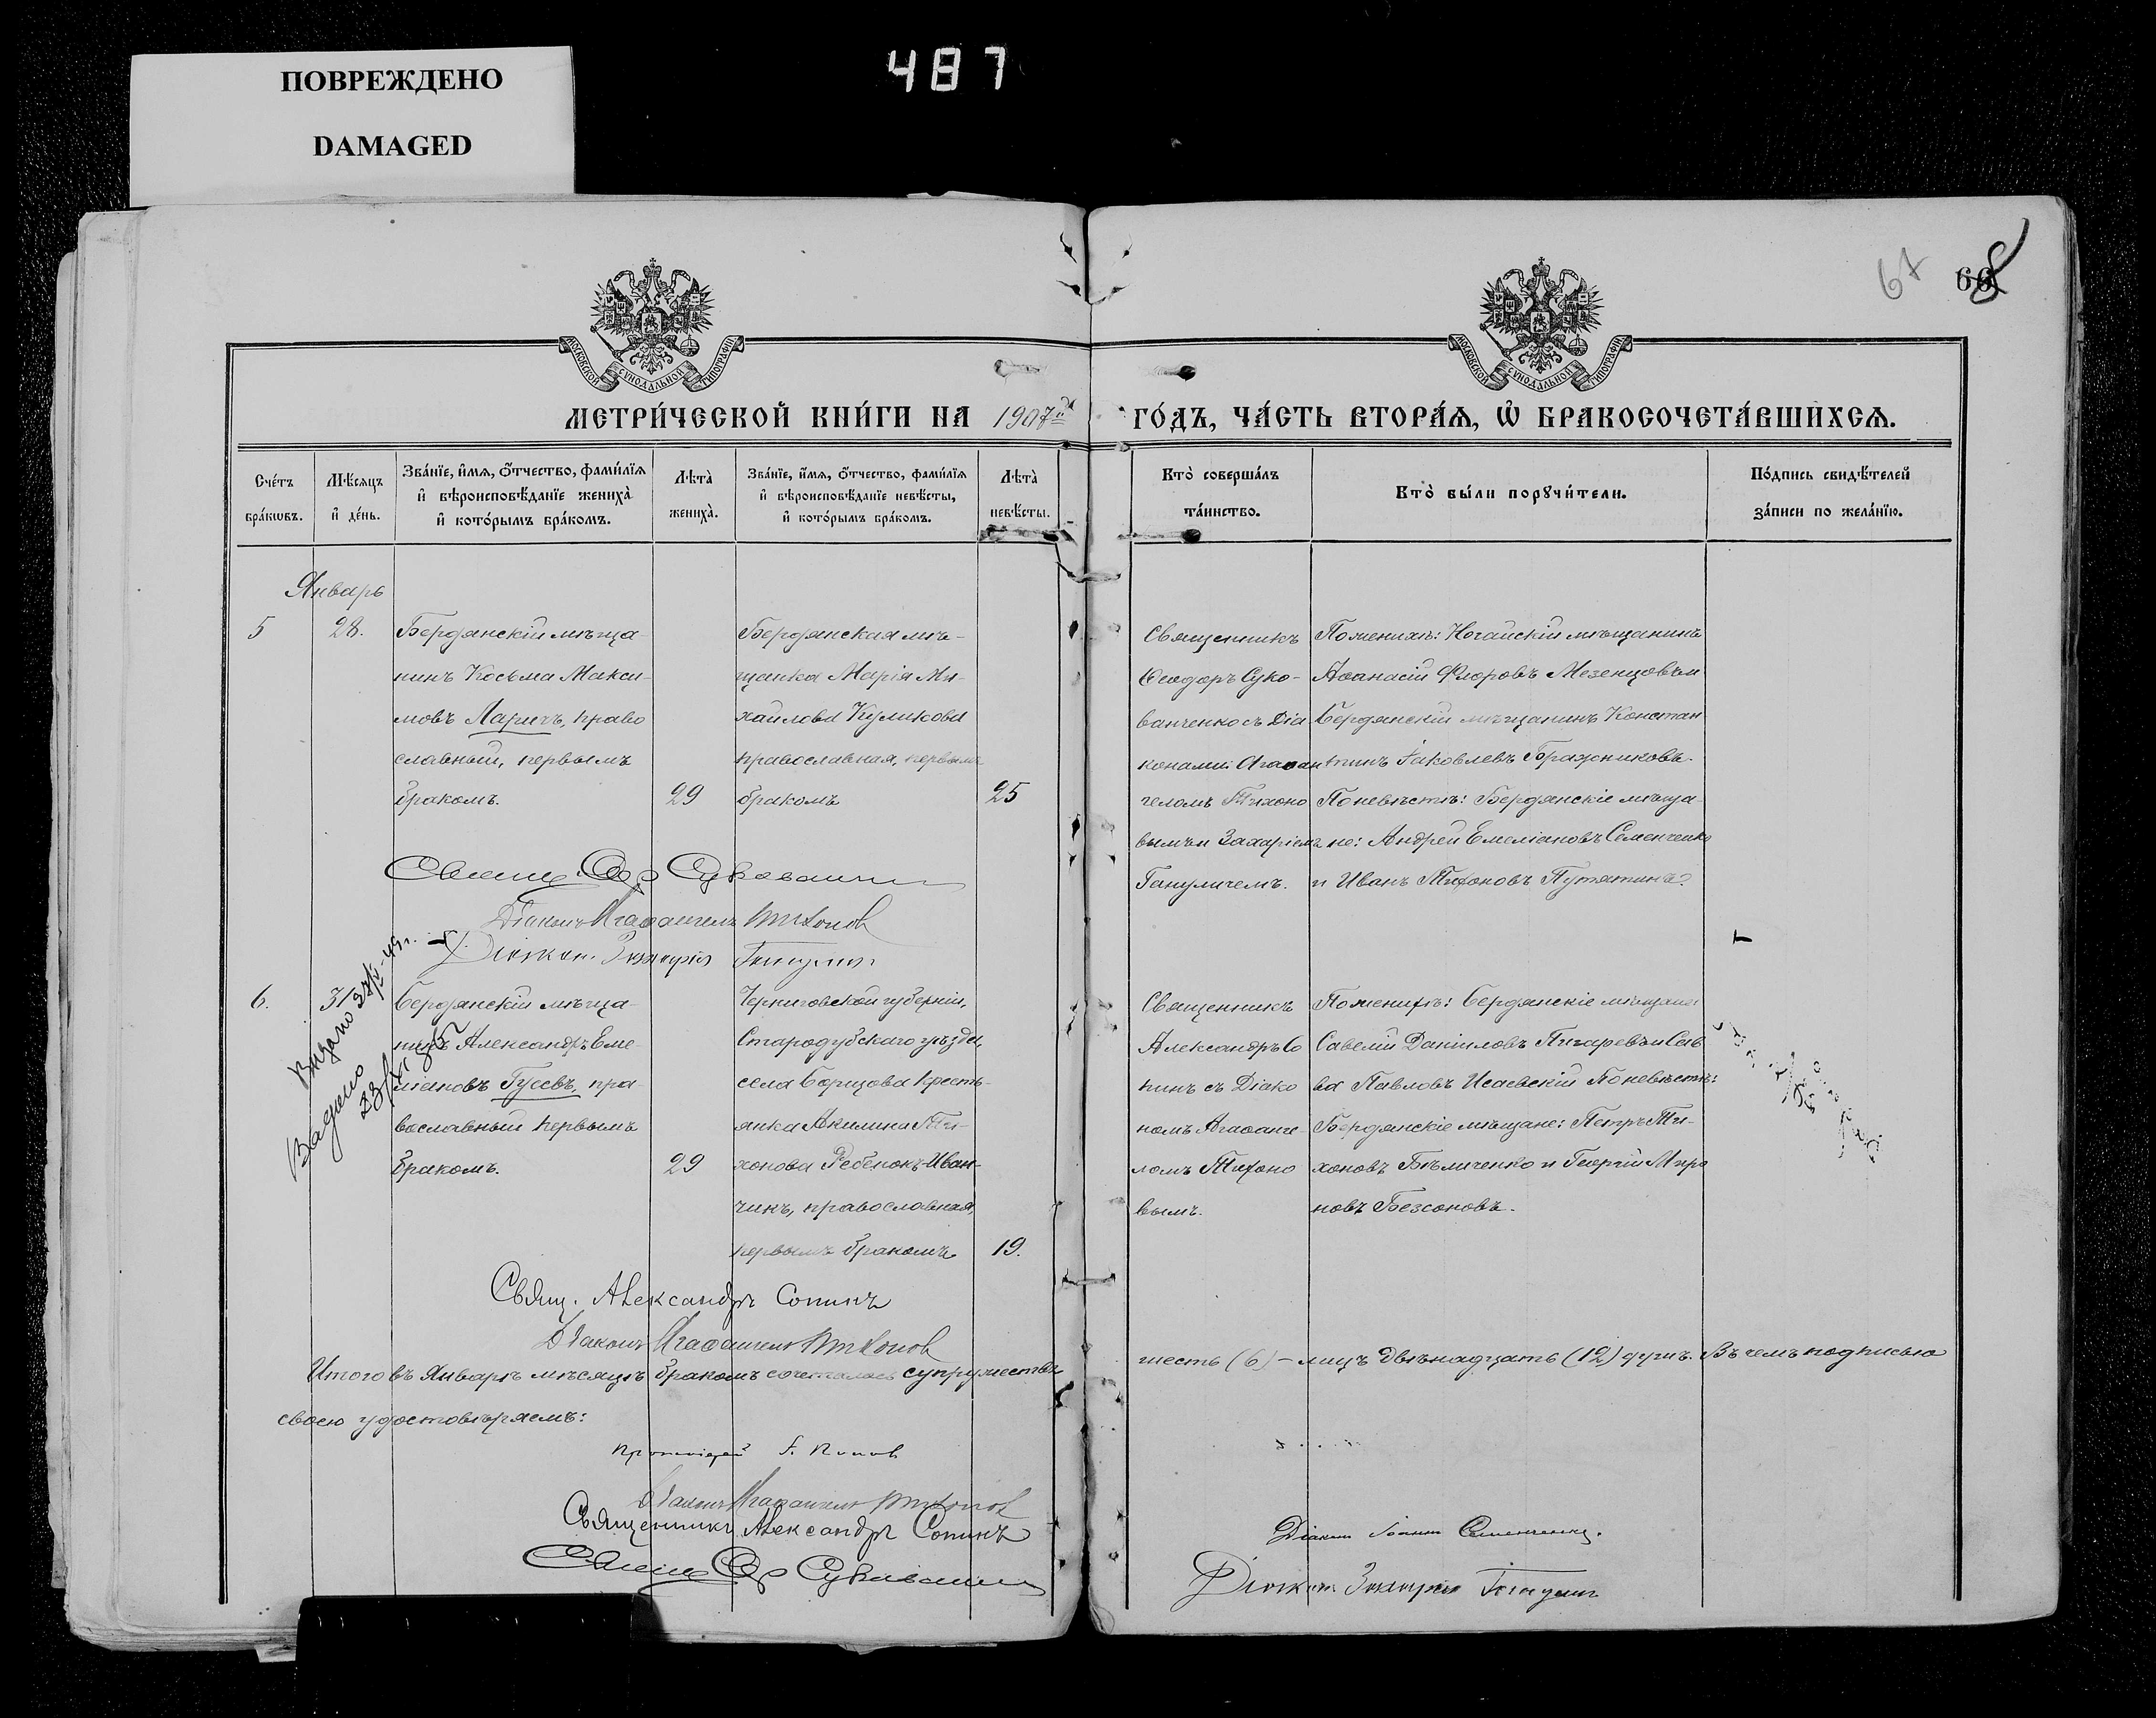 ПОВРЕЖДЕНО
DAMAGED
487
67
66
МОСКОВСКОЙ СѴНОДАЛЬНОЙ ТИПОГРАФІИ
МОСКОВСКОЙ СѴНОДАЛЬНОЙ ТИПОГРАФІИ
МЕТРИ́ЧЕСКОЙ КНИ́ГИ НА 1907й
ГО́ДЪ, ЧА́СТЬ ВТОРА́Ѧ, Ѡ҆ БРАКОСОЧЕТА́ВШИХСѦ.
Сче́тъ бра́кѡвъ.
Мѣ́сяцъ и҆ де́нь.
Зва́нїе, и҆́мѧ, ѻ҆́тчество, фами́лїѧ
и҆ вѣроисповѣ́данїе жениха̀
и҆ кото́рымъ бра́комъ.
Лѣта̀ жениха̀.
Зва́нїе, и҆́мѧ, ѻ҆́тчество, фами́лїѧ
и҆ вѣроисповѣ́данїе невѣ́сты,
и҆ кото́рымъ бра́комъ.
Лѣта̀ невѣ́сты.
Кто̀ соверша́лъ та́инство.
Кто̀ бы́ли порꙋчи́тели.
По́дпись свидѣ́телей за́писи по жела́нїю.
Январь
5
28.
Бердянскій мѣща-
нинъ Косьма Макси-
мовъ Ларичъ, право
славный, первымъ
бракомъ.
29
Бердянская мѣ-
щанка Марія Ми-
хаилова Куликова
православная, первымъ
бракомъ
25
Священникъ
Ѳеодоръ Суко-
ванченко съ Діа
конами: Агаѳан
геломъ Тихоно
вымъ и Захаріемъ
Гануличемъ.
По женихѣ: Ногайскій мѣщанинъ
Аѳанасій Флоровъ Мезенцовъ и
Бердянскій мѣщанинъ Констан
тинъ Іаковлевъ Бражниковъ.
По невѣстѣ: Бердянскіе мѣща
не: Андрей Емеліановъ Семенченко
и Иванъ Тихоновъ Путятинъ.
Діаконъ Агаѳангелъ Тихонов
Діакон. Захарія
6.
31
Бердянскій мѣща-
нинъ Александръ Еме-
ліановъ Гусевъ, пра-
вославный первымъ
бракомъ.
29
Черниговской губерніи,
Стародубскаго уѣзда,
села Борщова кресть-
янка Акилина Ти-
хонова Ребенокъ-Иван-
чинъ, православная,
первымъ бракомъ
19.
Священникъ
Александръ Со
пинъ съ Діако
номъ Агаѳанге-
ломъ Тихоно
вымъ.
По женихѣ: Бердянскіе мѣщане:
Савелій Даніиловъ Пигаревъ и Сав
ва Павловъ Исаевскій По невѣстѣ:
Бердянскіе мѣщане: Петръ Ти-
хоновъ Бѣличенко и Георгій Миро
новъ Безсоновъ.
Выдано
Свящ. Александръ Сопинъ
Діаконъ Агаѳангелъ Тихонов
Итого въ Январѣ мѣсяцѣ бракомъ сочеталось супружествъ
шесть (6) – лицъ двѣнадцать (12) душъ. Въ чемъ подписью
своею удостовѣряемъ:
Протоіерей А. Попов
Діаконъ Агаѳангелъ Тихонов
Священникъ Александръ Сопинъ
Діакон Іоанн Семенченко.
Діакон Захарія